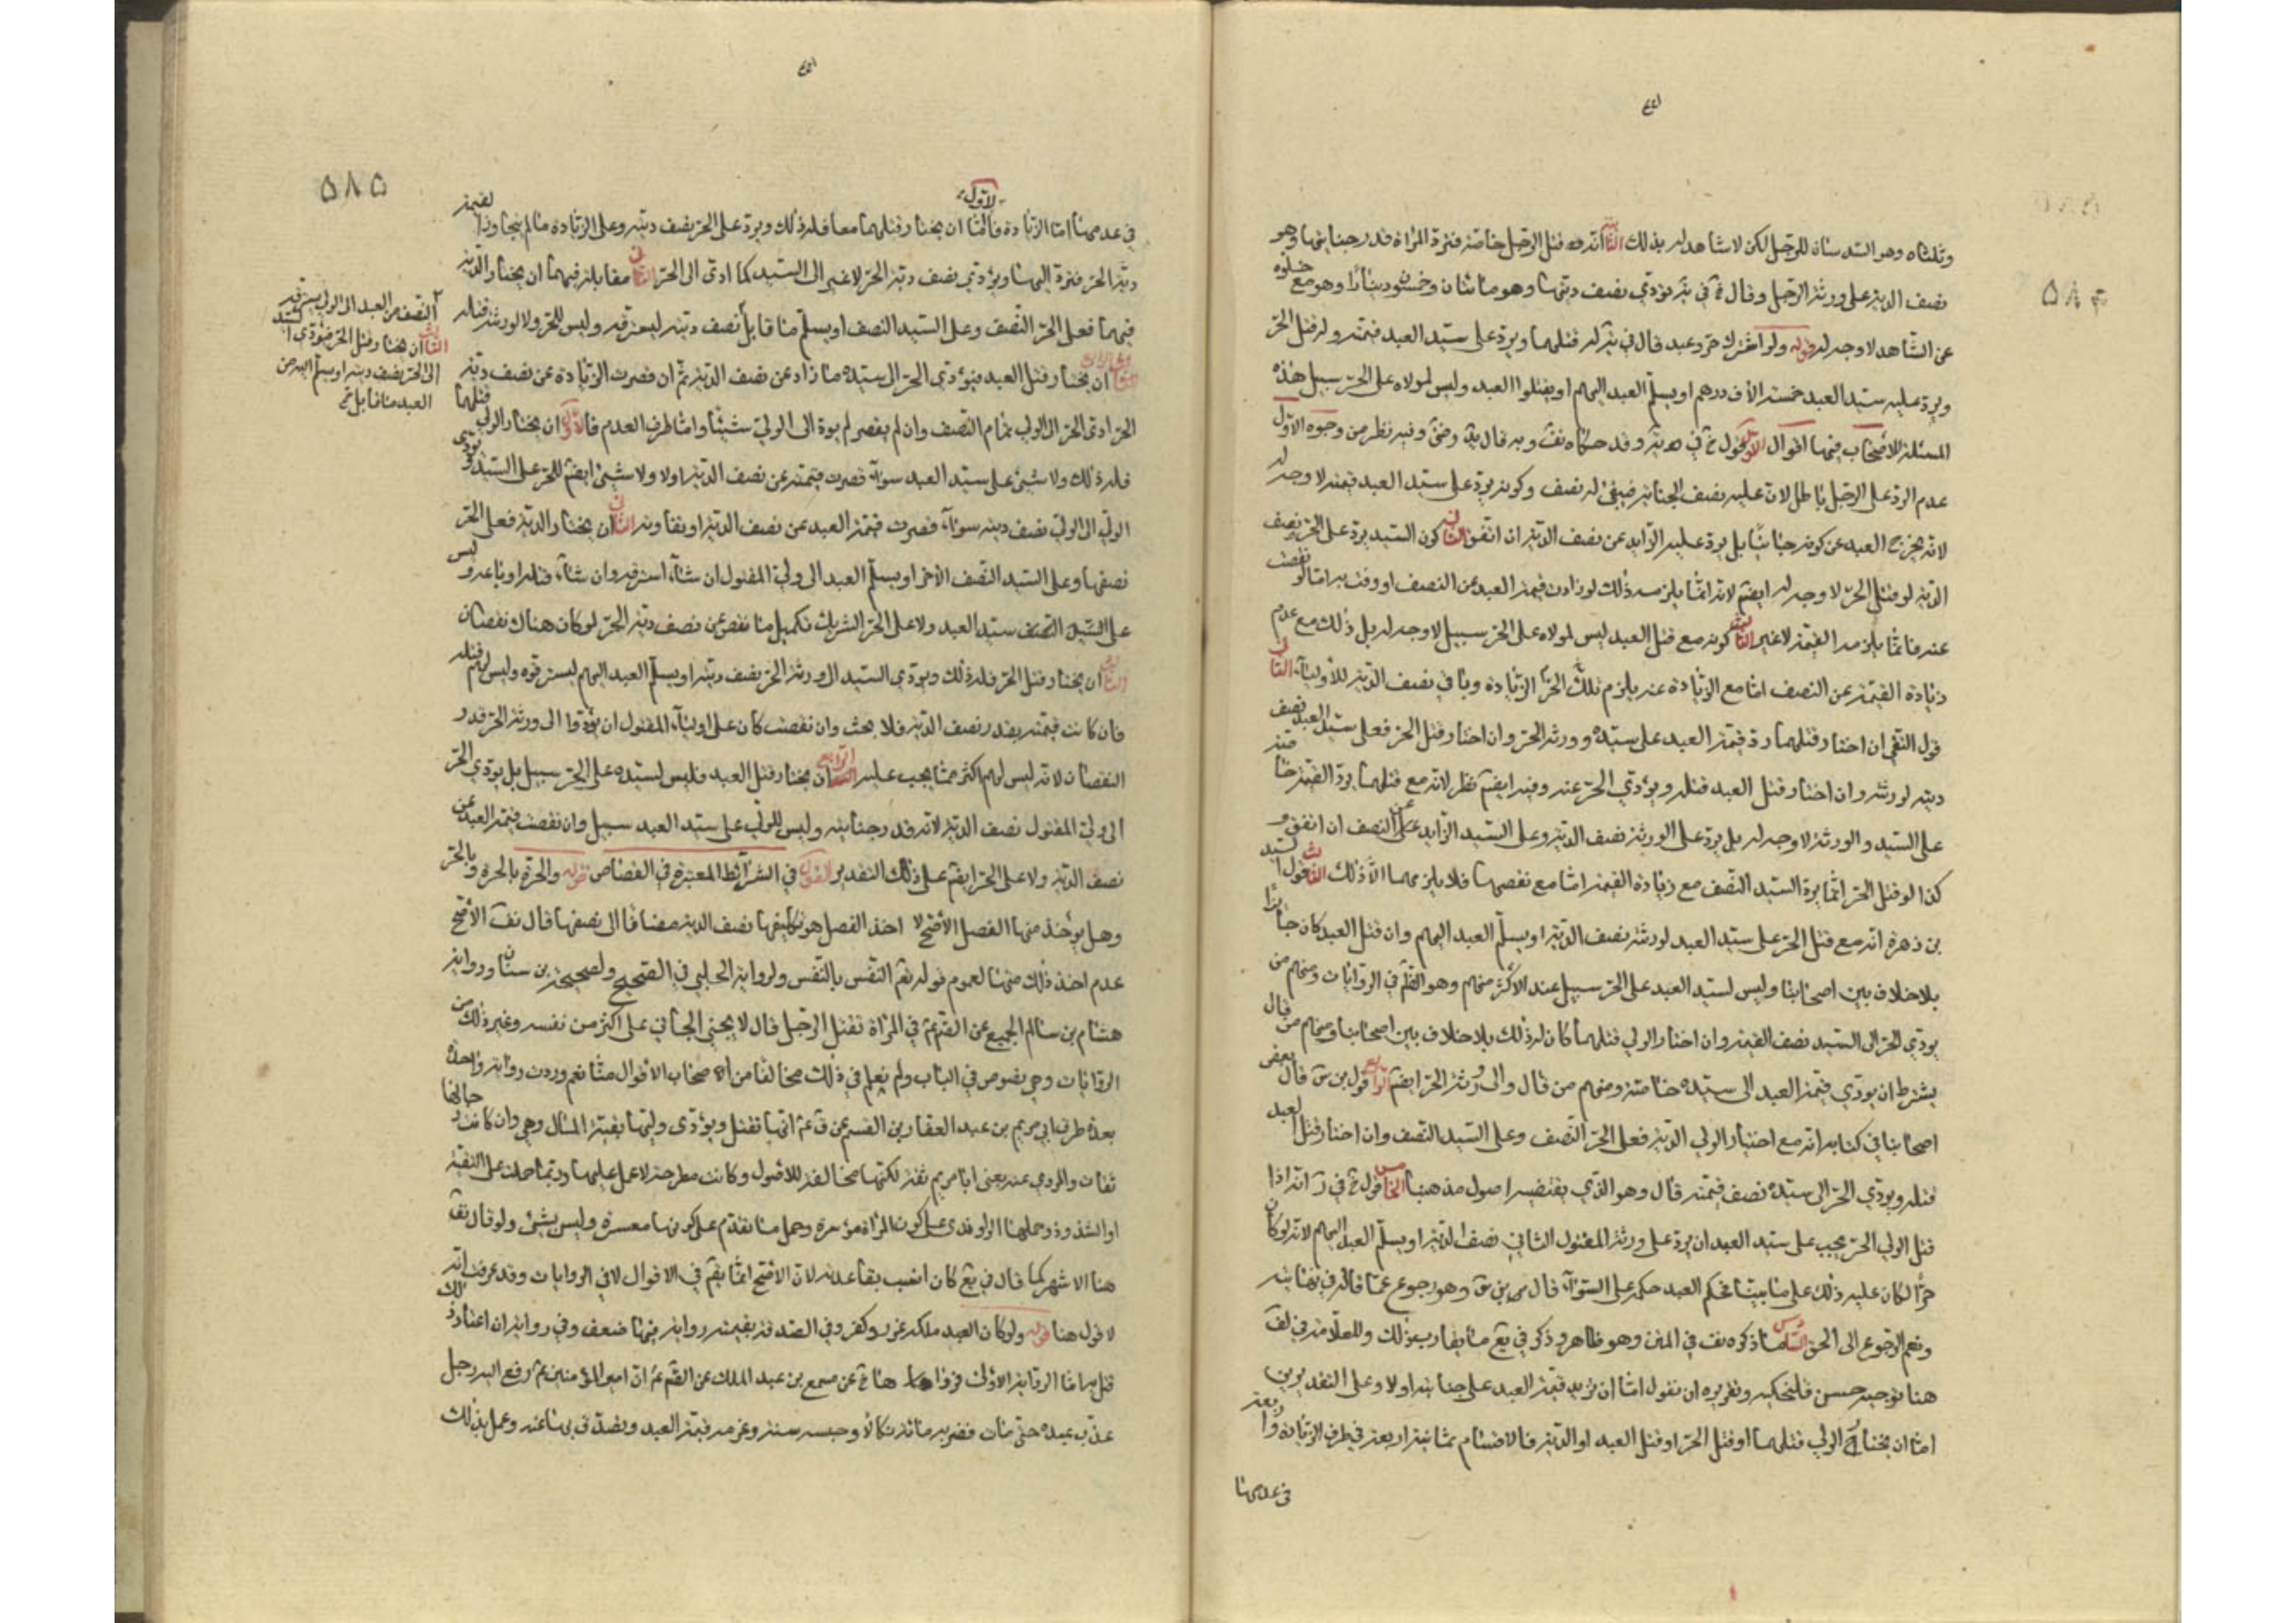 وثلثاه وهو السدسان للرجل لكن لا شاهد له بذلك الثالث انه قتل الرجل خاصة فترد المراة قدر جنايتها وهو
نصف الدية على ورثة الرجل وقال في يه يؤدي نصف ديتها وهو مائتان وخمسون دينارا وهو مع خلوه
عن الشاهد لا وجه له قوله ولو اشترك حر وعبد قال في يه له قتلهما ويرد على سيد العبد قيمته وله قتل الحر
ويرد عليه سيد العبد خمسة الاف درهم او يسلم العبد اليهم او يقتلوا العبد وليس لمولاه على الحر سبيل هذه
المسئلة للاصحاب فيها اقوال الاول قول في يه وقد حكاه وبه قال وفيه نظر من وجوه الاول
عدم الرد على الرجل باطل لان عليه نصف الجناية فيبقى له نصف وكونه يرد على سيد العبد قيمته لا وجه له
لانه يخرج العبد عن كونه جانيا بل يرد عليه الزايد عن نصف الدية ان اتفق الثاني كون السيد يرد على الحر نصف
الدية لو قتل الحر لا وجه له ايضا لانه انما يلزمه ذلك لو زادت قيمة العبد عن النصف او وقت به اما لو نقصت
عنه فانما يلزمه القيمة لا غير الثالث كونه مع قتل العبد ليس لمولاه على الحر سبيل لا وجه له بل ذلك مع عدم
زيادة القيمة عن النصف اما مع الزيادة عنه يلزم تلك الحر الزيادة وباقي نصف الدية للاولياء الثاني
قول التقي ان اختار قتلهما رد قيمة العبد على سيده وورثة الحر وان اختار قتل الحر فعلى سيد العبد نصف
ديته لورثته وان اختار قتل العبد قتله ويؤدي الحر عنه وفيه ايضا نظر لانه مع قتلهما يرد القيمة خاصة
على السيد والورثة لا وجه له بل يرد على الورثة نصف الدية وعلى السيد الزايد عن النصف ان اتفق و
كذا لو قتل الحر انما يرد السيد النصف مع زيادة القيمة اما مع نقصها فلا يلزمه الا ذلك الثالث قول السيد
بن زهرة انه مع قتل الحر على سيد العبد لورثته نصف الدية او يسلم العبد اليهم وان قتل العبد كان جائزا
بلا خلاف بين اصحابنا وليس لسيد العبد على الحر سبيل عند الاكثر منهم وهو الظم في الروايات ومنهم من
يؤدي الحر الى السيد نصف القيمة وان اختار الولي قتلهما كان له ذلك بلا خلاف بين اصحابنا ومنهم من قال
يشترط ان يؤدي قيمة العبد الى سيده خاصة ومنهم من قال والى ورثة الحر ايضا الرابع قول بن س قال بعض
اصحابنا في كتابه انه مع اختيار الولي الدية فعلى الحر النصف وعلى السيد النصف وان اختار قتل العبد
قتله ويؤدي الحر الى سيده نصف قيمته قال وهو الذي يقتضيه اصول مذهبنا الخامس قول في ر انه اذا
قتل الولي الحر يجب على سيد العبد ان يرد على ورثة المقتول الثاني نصف الدية او يسلم العبد اليهم لانه لو كان
حرا لكان عليه ذلك على ما بيناه فحكم العبد حكمه على السواء قال بن س وهو رجوع عما قاله في نهايته
ونعم الرجوع الى الحق السادس ما ذكره في المتن وهو ظاهر وذكر في يع ما يقارب ذلك وللعلامة في لف
هنا توجيه حسن فلنحكيه وتقريره ان نقول اما ان تزيد قيمة العبد على جنايته اولا وعلى التقديرين
اما ان يختار الولي قتلهما او قتل الحر او قتل العبد او الدية فالاقسام ثمانية اربعة في طرف الزيادة واربعة
في عدمها
٥٨٤
٥٨٥
في عدمها اما الزيادة فالاول ان يختار قتلهما معا فله ذلك ويرد على الحر نصف ديته وعلى الزيادة ما لم يتجاوز القيمة
دية الحر فترد اليها ويؤدي نصف دية الحر لا غير الى السيد كما ادى الى الحر الثاني مقابله فيهما ان يختار الدية
فيهما فعلى الحر النصف وعلى السيد النصف او يسلم ما قابل نصف ديته ليسترقه وليس للحر ولا لورثته قتله
ان يختار قتل العبد فيؤدي الحر الى سيده ما زاد عن نصف الدية ثم ان قصرت الزيادة عن نصف دية
الحر ادى الحر الى الولي تمام النصف وان لم يقصر لم يرد الى الولي شيئا واما طرف العدم فالاول ان يختار الولي قتلهما
فله ذلك ولا شيء على سيد العبد سواء قصرت قيمته عن نصف الدية اولا ولا شيء ايضا للحر على السيد ويؤدي
الولي الى الولي نصف ديته سواء قصرت قيمة العبد عن نصف الدية او تفاوته الثاني ان يختار الدية فعلى الحر
نصفها وعلى السيد النصف الاخر او يسلم العبد الى ولي المقتول ان شاء استرقه وان شاء قتله او باعه وليس
على السيد سيد العبد ولا على الحر الشريك تكميل ما نقص عن نصف دية الحر لو كان هناك نقصان
الثالث ان يختار قتل الحر فله ذلك ويؤدي السيد الى ورثة الحر نصف ديته او يسلم العبد اليهم ليسترقوه وليس لهم قتله
فان كانت قيمته بقدر نصف الدية فلا بحث وان نقصت كان على اولياء المقتول ان يؤدوا الى ورثة الحر قدر
النقصان لانه ليس لهم اكثر مما يجب عليه الرابع ان يختار قتل العبد فليس لسيده على الحر سبيل بل يؤدي الحر
الى ولي المقتول نصف الدية لانه قدر جنايته وليس للولي على سيد العبد سبيل وان نقصت قيمة العبد عن
نصف الدية ولا على الحر ايضا على ذلك التقدير القول في الشرائط المعتبرة في القصاص قوله والحرة بالحرة وبالحر
وهل يؤخذ منها الفضل الاصح لا اخذ الفضل هو تكليفها نصف الدية مضافا الى نصفها قال الاصح
عدم اخذ ذلك منها لعموم قوله تعم النفس بالنفس ولرواية الحلبي في الصحيح ولصحيحة بن سنان ورواية
هشام بن سالم الجميع عن الصم ع في المراة تقتل الرجل قال لا يجني الجاني على اكثر من نفسه وغير ذلك من
الروايات وهي نصوص في الباب ولم نعلم في ذلك مخالفا من اصحاب الاقوال منا نعم وردت رواية واحدة
بعدة طرق ابي مريم بن عبد الغفار بن القسم عن ق ع انها تقتل ويؤدى وليها بقية المال وهي وان كانت رجالها
ثقات والمروي عنه يعني ابا مريم ثقة لكنها مخالفة للاصول وكانت مطرحة لا عمل عليها وربما حملت على التقية
او الشذوذ وحملها الراوندي على كون المراة موسرة وحمل ما تقدم على كونها معسرة وليس بشيء ولو قال
هنا الاشهر كما قال في يع كان انسب بقاعدته لان الاصح انما يقم في الاقوال لا في الروايات وقد عرفت انه
لا قول هنا قوله ولو كان العبد ملكه عزر وكفر وفي الصدقة بقيمته رواية فيها ضعف وفي رواية ان اعتاد ذلك
قتل به اما الرواية الاولى فرواها عن مسمع بن عبد الملك عن الصم ع ان امير المؤمنين ع رفع اليه رجل
عذب عبده حتى مات فضربه مائة نكالا وحبسه سنة وغرمه قيمة العبد وتصدق بها عنه وعمل بذلك
النصف من العبد الى الولي يسترقه
الثالث ان يختار قتل الحر فيؤدي السيد
الى الحر نصف ديته او يسلم اليه من
العبد ما قابل